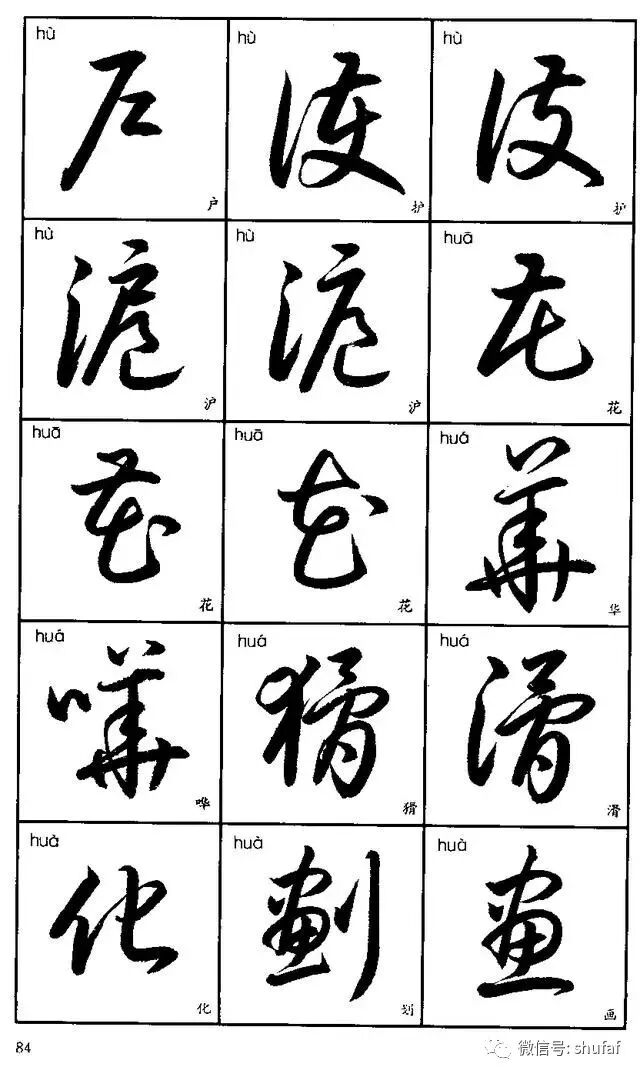 hù hù hù
户 護 護
户 护 护
hù hù huā
滬 滬 花
沪 沪 花
huā huā huá
花 花 華
花 花 华
huá huá huá
嘩 猾 滑
哗 猾 滑
huà huà huà
化 劃 畫
化 划 画
84
微信号: shufaf